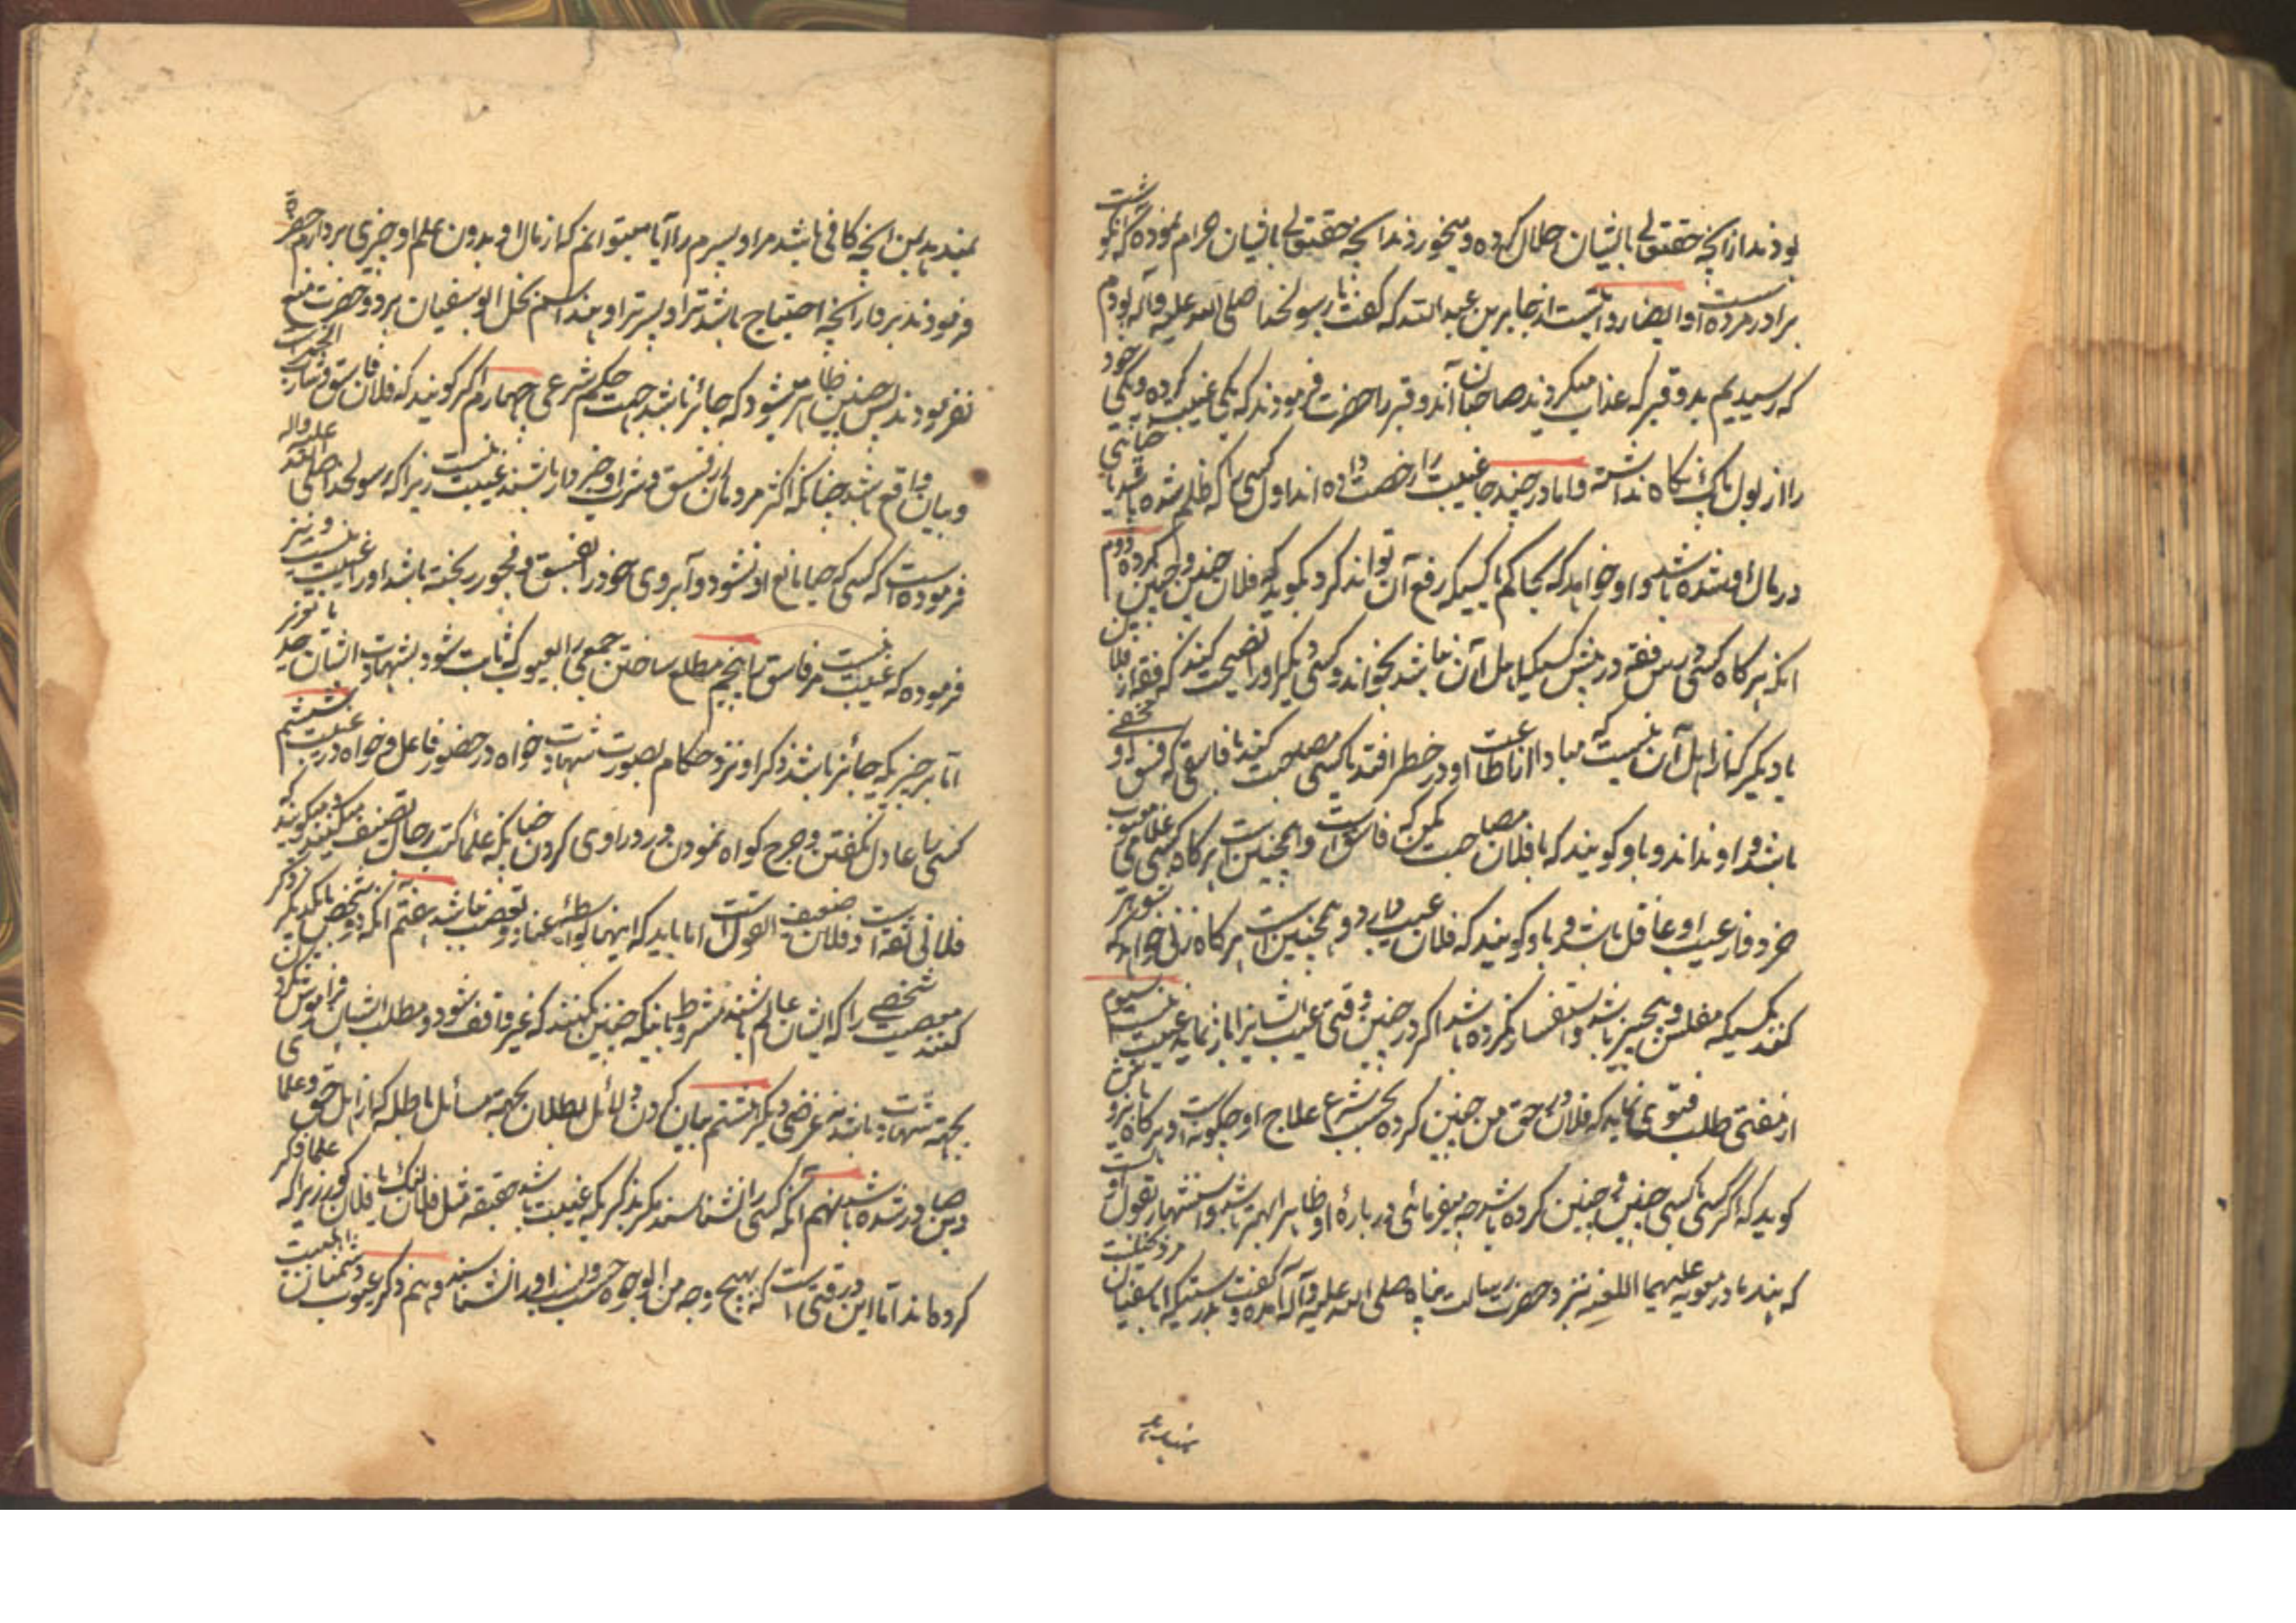 بودند از آنچه حقتعالی بایشان حلال کرده و میخورند آنچه حقتعالی بایشان حرام نموده که گوشت
برادر مرده است و ایضا روایتست از جابر بن عبدالله که گفت با رسولخدا صلی الله علیه و آله بودم
که رسیدیم بدو قبر که عذاب میکردند صاحبان آن دو قبر را حضرت فرمودند که یکی غیبت کرده و یکی خود
را از بول پاک نگاه نداشته و اما در چند جا غیبت را رخصت داده اند اول کسی را که ظلم شده باشد یا خیانتی
در مال او شده باشد و او خواهد که بحاکم یا کسیکه رفع آن تواند کرد بگوید که فلان چنین و چنین کرده دوم
آنکه هرگاه کسی درس فقه در پیش کسیکه اهل آن نباشد بخواند و کسی دیگر او را نصیحت کند که فقه از فلان
یا دیگر که از اهل آن نیست که مبادا از اطاعت او در خطر افتد یا کسی مصاحبت کند با فاسقی که فسق او
باشد و او نداند و باو گویند که با فلان مصاحبت مکن که فاسق است و همچنین است هرگاه کسی غلامی
خرد و از عیب او غافل باشد و باو گویند که فلان عیب دارد و همچنین است هرگاه زنی خواهد که شوهر
کند بکسیکه مفلس و بیچیز باشد و استفسار نکرده باشد اگر در چنین وقتی عیب ایشانرا باز نماید غیبت نیست سیوم
از مفتی طلب فتوی نماید که فلان در حق من چنین کرده بحسب شرع علاج او چگونه است و هرگاه
گوید که اگر کسی با کسی چنین و چنین کرده باشد چه میفرمائی درباره او ظاهرا بهتر باشد و استشهار بقول
که هند مادر معویه علیهما اللعنه نزد حضرت رسالت پناه صلی الله علیه و آله آمده و گفت بدرستیکه ابا سفیان مرد بخیلیست
نمیدهد بمن آنچه کافی باشد مرا و پسرم را آیا میتوانم که از مال او بدون علم او چیزی بردارم حضرت
فرمودند بردار آنچه احتیاج باشد ترا و پسر ترا و هند اسم بخل ابو سفیان برد و حضرت منع
نفرمودند پس چنین ظاهر میشود که جائز باشد جهت حکم شرعی چهارم اگر گویند که فلان فاسق و شارب الخمر است
و بیان واقع باشد چنانکه اکثر مردمان از فسق و شرب او خبردار باشند غیبت نیست زیرا که رسولخدا صلی الله علیه و آله
فرموده است که کسی که حیا مانع او نشود و آبروی خود را بفسق و فجور ریخته باشد او را غیبت نیست و نیز
فرموده که غیبت نیست مر فاسق را پنجم مطلع ساختن جمعی را بعیوب که ثابت شود بشهادت ایشان حد یا تعزیر
اما هر چیزیکه جائز باشد ذکر او نزد حکام بصورت شهادت خواه در حضور فاعل و خواه در غیبت ششم
کسی را عادل نگفتن و جرح گواه نمودن و رد راوی کردن چنانکه علما کتب رجال تصنیف میکنند و میگویند که
فلانی ثقه است و فلان ضعیف القول است اما باید که اینها بواسطه عناد و تعصب نباشد هفتم آنکه دو شخص با یکدیگر ذکر
معصیت شخصی را که ایشان عالم باشند کنند بشروط آنکه چنین نکنند که غیر واقف شود و مطلب ایشان فراموش نکردن
بجهة شهادت باشد نه غرضی دیگر هشتم بیان کردن دلائل بطلان بجهة مسائل باطله که از اهل حق و علما
دین صادر شده باشد نهم آنکه کسی را نشناسند مگر بذکریکه غیبت باشد حقیقه مثل فلان لنگ یا فلان کور زیرا که علما ذکر
کرده اند اما این در وقتی است که بهیچ وجه من الوجوه حسب و نسب او را نشناسند دهم ذکر عیوب دشمنان